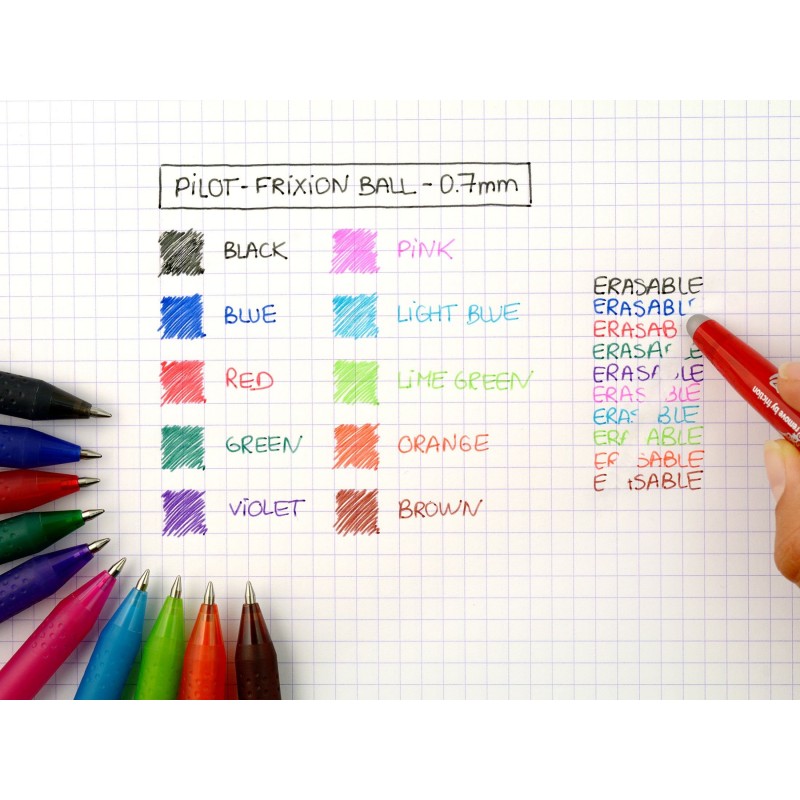 PILOT - FRIXION BALL - 0.7mm
BLACK
BLUE
RED
GREEN
VIOLET
PINK
LIGHT BLUE
LIME GREEN
ORANGE
BROWN
ERASABLE
ERASABL
ERASAB
ERASA
ERASA LE
ERAS BLE
ERAS BLE
ERA ABLE
ER SABLE
E SABLE
remove by friction